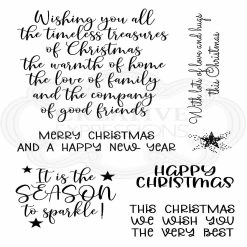 Wishing you all
the timeless treasures
of Christmas
the warmth of home
the love of family
and the company
of good friends
With lots of love and hugs
this Christmas
MERRY CHRISTMAS
AND A HAPPY NEW YEAR
It is the
SEASON
to sparkle!
HAPPY
CHRISTMAS
THIS CHRISTMAS
WE WISH YOU
THE VERY BEST